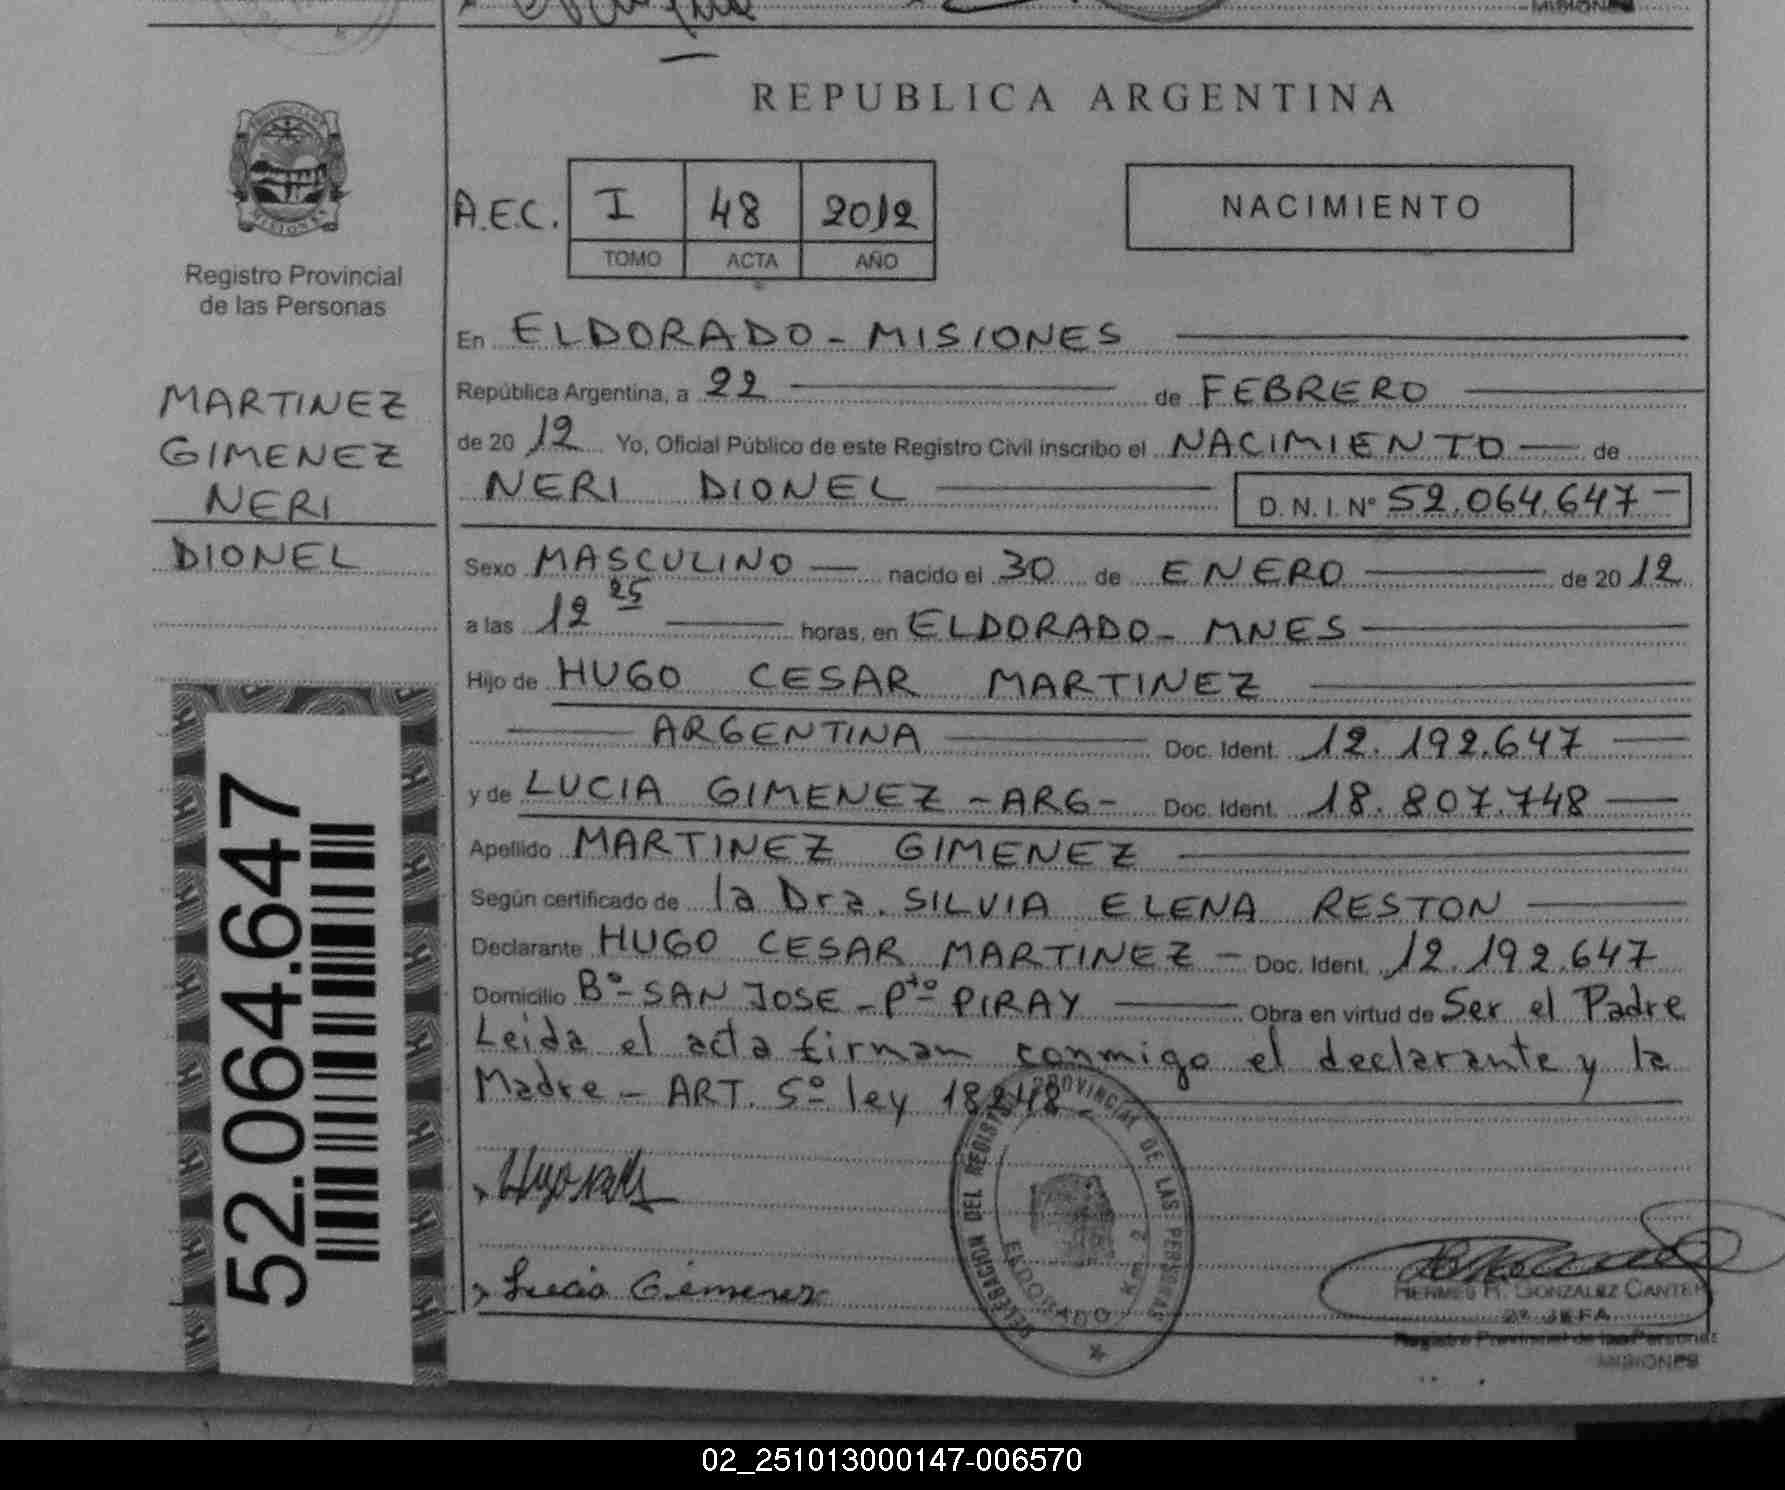 MISIONES
REPUBLICA ARGENTINA
PROVINCIA
MISIONES
Registro Provincial
de las Personas
A.E.C. I 48 2012
TOMO ACTA AÑO
NACIMIENTO
MARTINEZ
GIMENEZ
NERI
DIONEL
En ELDORADO - MISIONES
República Argentina, a 22 de FEBRERO
de 20 12 Yo, Oficial Público de este Registro Civil inscribo el NACIMIENTO de
NERI DIONEL D. N. I. Nº 52.064.647
Sexo MASCULINO nacido el 30 de ENERO de 20 12
a las 12 25 horas, en ELDORADO - MNES
Hijo de HUGO CESAR MARTINEZ
ARGENTINA Doc. Ident. 12.192.647
y de LUCIA GIMENEZ - ARG - Doc. Ident. 18.807.748
Apellido MARTINEZ GIMENEZ
Según certificado de la Dra. SILVIA ELENA RESTON
Declarante HUGO CESAR MARTINEZ - Doc. Ident. 12.192.647
Domicilio Bº - SAN JOSE - Pto PIRAY Obra en virtud de Ser el Padre
Leida el acta firman conmigo el declarante y la
Madre - ART. 5º ley 18248
52.064.647
Lucia Gimenez
DELEGACION DEL REGISTRO PROVINCIAL DE LAS PERSONAS
ELDORADO Km. 2
HERMES R. GONZALEZ CANTER
2º JEFA
Registro Provincial de las Personas
MISIONES
02_251013000147-006570